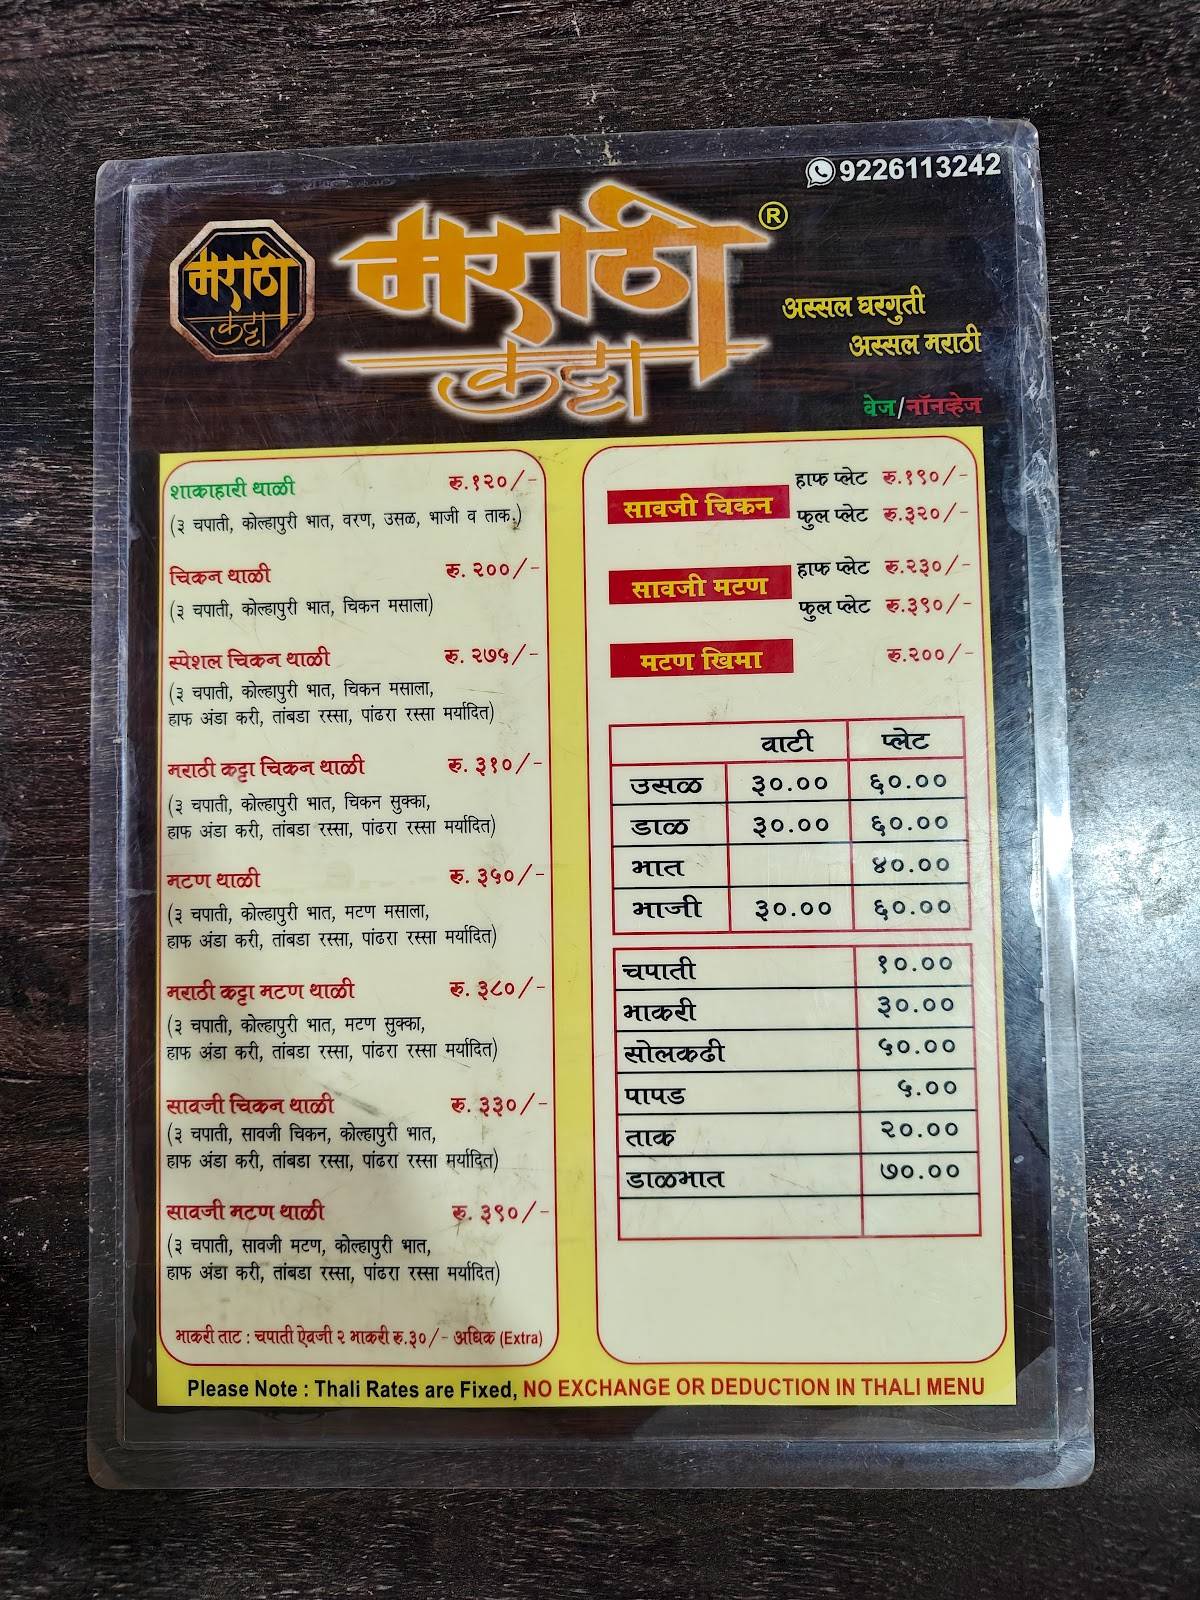 9226113242
मराठी
कट्टा
मराठी ®
कट्टा
अस्सल घरगुती
अस्सल मराठी
वेज/नॉनव्हेज
शाकाहारी थाळी रु.१२०/-
(३ चपाती, कोल्हापुरी भात, वरण, उसळ, भाजी व ताक.)
चिकन थाळी रु. २००/-
(३ चपाती, कोल्हापुरी भात, चिकन मसाला)
स्पेशल चिकन थाळी रु. २७५/-
(३ चपाती, कोल्हापुरी भात, चिकन मसाला,
हाफ अंडा करी, तांबडा रस्सा, पांढरा रस्सा मर्यादित)
मराठी कट्टा चिकन थाळी रु. ३१०/-
(३ चपाती, कोल्हापुरी भात, चिकन सुक्का,
हाफ अंडा करी, तांबडा रस्सा, पांढरा रस्सा मर्यादित)
मटण थाळी रु. ३५०/-
(३ चपाती, कोल्हापुरी भात, मटण मसाला,
हाफ अंडा करी, तांबडा रस्सा, पांढरा रस्सा मर्यादित)
मराठी कट्टा मटण थाळी रु. ३८०/-
(३ चपाती, कोल्हापुरी भात, मटण सुक्का,
हाफ अंडा करी, तांबडा रस्सा, पांढरा रस्सा मर्यादित)
सावजी चिकन थाळी रु. ३३०/-
(३ चपाती, सावजी चिकन, कोल्हापुरी भात,
हाफ अंडा करी, तांबडा रस्सा, पांढरा रस्सा मर्यादित)
सावजी मटण थाळी रु. ३९०/-
(३ चपाती, सावजी मटण, कोल्हापुरी भात,
हाफ अंडा करी, तांबडा रस्सा, पांढरा रस्सा मर्यादित)
भाकरी ताट : चपाती ऐवजी २ भाकरी रु.३०/- अधिक (Extra)
सावजी चिकन
हाफ प्लेट रु.१९०/-
फुल प्लेट रु.३२०/-
सावजी मटण
हाफ प्लेट रु.२३०/-
फुल प्लेट रु.३९०/-
मटण खिमा रु.२००/-
वाटी प्लेट
उसळ ३०.०० ६०.००
डाळ ३०.०० ६०.००
भात ४०.००
भाजी ३०.०० ६०.००
चपाती १०.००
भाकरी ३०.००
सोलकढी ५०.००
पापड ५.००
ताक २०.००
डाळभात ७०.००
Please Note : Thali Rates are Fixed, NO EXCHANGE OR DEDUCTION IN THALI MENU